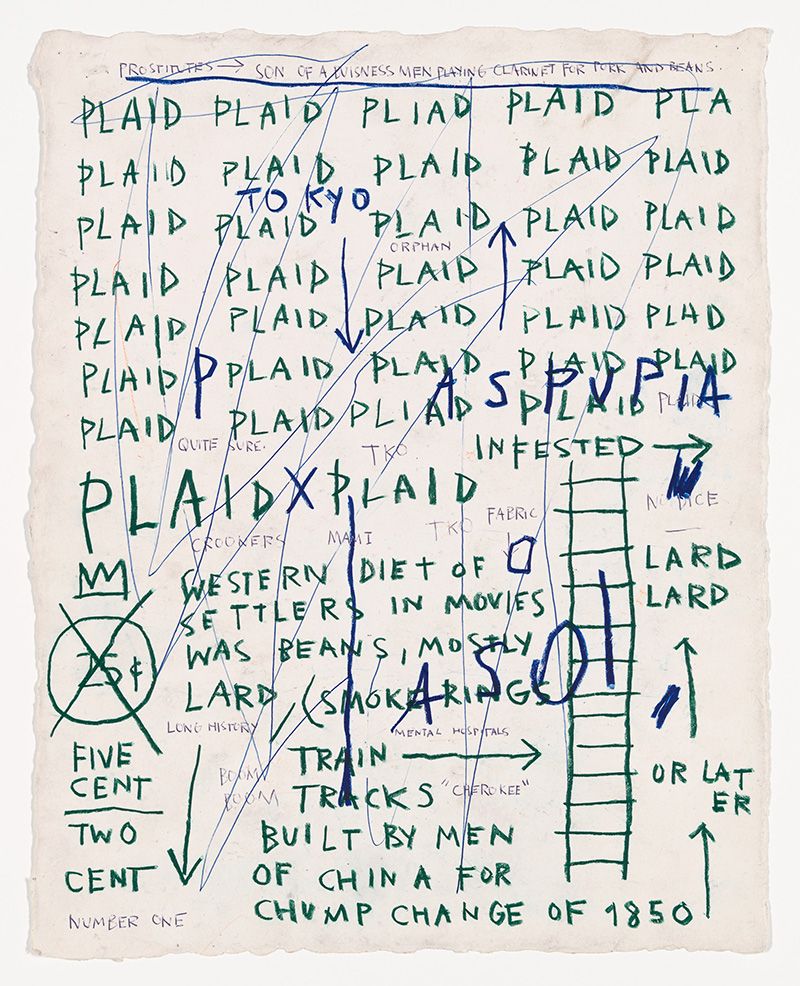 PROSTITUTES → SON OF A BUISNESS MEN PLAYING CLARINET FOR PORK AND BEANS.
PLAID PLAID PLIAD PLAID PLA
PLAID PLAID PLAID PLAID PLAID
TOKYO
PLAID PLAID PLAID PLAID PLAID
ORPHAN
PLAID PLAID PLAID PLAID PLAID
PLAID PLAID PLAID PLAID PLAD
PLAID P PLAID PLAID PLAID PLAID
A S P V P I A
PLAID PLAID PLIAD PLAID PLAID
QUITE SURE. TKO INFESTED →
PLAID X PLAID
NO DICE
TKO FABRIC
CROONERS MAMI
WESTERN DIET OF
SETTLERS IN MOVIES
WAS BEANS, MOSTLY
LARD (SMOKE RINGS
LARD
LARD
A S O I
25¢
LONG HISTORY MENTAL HOSPITALS
FIVE
CENT
TWO
CENT
NUMBER ONE
BOOM
BOOM
TRAIN →
TRACKS "CHEROKEE"
BUILT BY MEN
OF CHINA FOR
CHUMP CHANGE OF 1850
OR LAT
ER